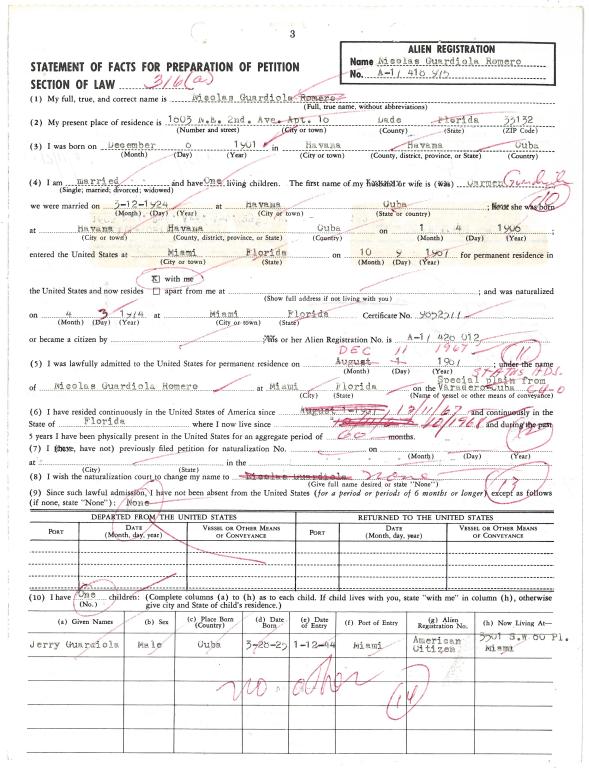 3
ALIEN REGISTRATION
Name Nicolas Guardiola Romero
No. A-17 410 915
STATEMENT OF FACTS FOR PREPARATION OF PETITION
SECTION OF LAW 316(a)
(1) My full, true, and correct name is Nicolas Guardiola Romero
(Full, true name, without abbreviations)
(2) My present place of residence is 1605 N.E. 2nd. Ave. Apt. 10 Dade Florida 33132
(Number and street) (City or town) (County) (State) (ZIP Code)
(3) I was born on December 6 1901 in Havana Havana Cuba
(Month) (Day) (Year) (City or town) (County, district, province, or State) (Country)
(4) I am married and have One living children. The first name of my husband or wife is (was) Carmen Guardiola
(Single; married; divorced; widowed)
we were married on 3-12-1924 at Havana Cuba ; He or she was born
(Month) (Day) (Year) (City or town) (State or country)
at Havana Havana Cuba on 1 4 1906
(City or town) (County, district, province, or State) (Country) (Month) (Day) (Year)
entered the United States at Miami Florida on 10 9 1967 for permanent residence in
(City or town) (State) (Month) (Day) (Year)
X with me
the United States and now resides apart from me at ; and was naturalized
(Show full address if not living with you)
on 4 3 1974 at Miami Florida Certificate No. 9852511
(Month) (Day) (Year) (City or town) (State)
or became a citizen by His or her Alien Registration No. is A-17 420 012
DEC 11 1967 11
(5) I was lawfully admitted to the United States for permanent residence on August 1 1961 under the name
(Month) (Day) (Year)
of Nicolas Guardiola Romero at Miami Florida on the Special plain from Varadero Cuba
(City) (State) (Name of vessel or other means of conveyance)
(6) I have resided continuously in the United States of America since 12/11/67 and continuously in the
State of Florida where I now live since 10/1968 and during the past
5 years I have been physically present in the United States for an aggregate period of 60 months. 12
(7) I (have, have not) previously filed petition for naturalization No. on
(Month) (Day) (Year)
at in the
(City) (State)
(8) I wish the naturalization court to change my name to Nicolas Guardiola none
(Give full name desired or state "None") 13
(9) Since such lawful admission, I have not been absent from the United States (for a period or periods of 6 months or longer) except as follows
(if none, state "None"); None
DEPARTED FROM THE UNITED STATES RETURNED TO THE UNITED STATES
PORT DATE (Month, day, year) VESSEL OR OTHER MEANS OF CONVEYANCE PORT DATE (Month, day, year) VESSEL OR OTHER MEANS OF CONVEYANCE
(10) I have One children: (Complete columns (a) to (h) as to each child. If child lives with you, state "with me" in column (h), otherwise
(No.) give city and State of child's residence.)
(a) Given Names (b) Sex (c) Place Born (Country) (d) Date Born (e) Date of Entry (f) Port of Entry (g) Alien Registration No. (h) Now Living At—
Jerry Guardiola Male Cuba 3-28-25 1-12-44 Miami American Citizen 3501 S.W 60 Pl. Miami
no other 14